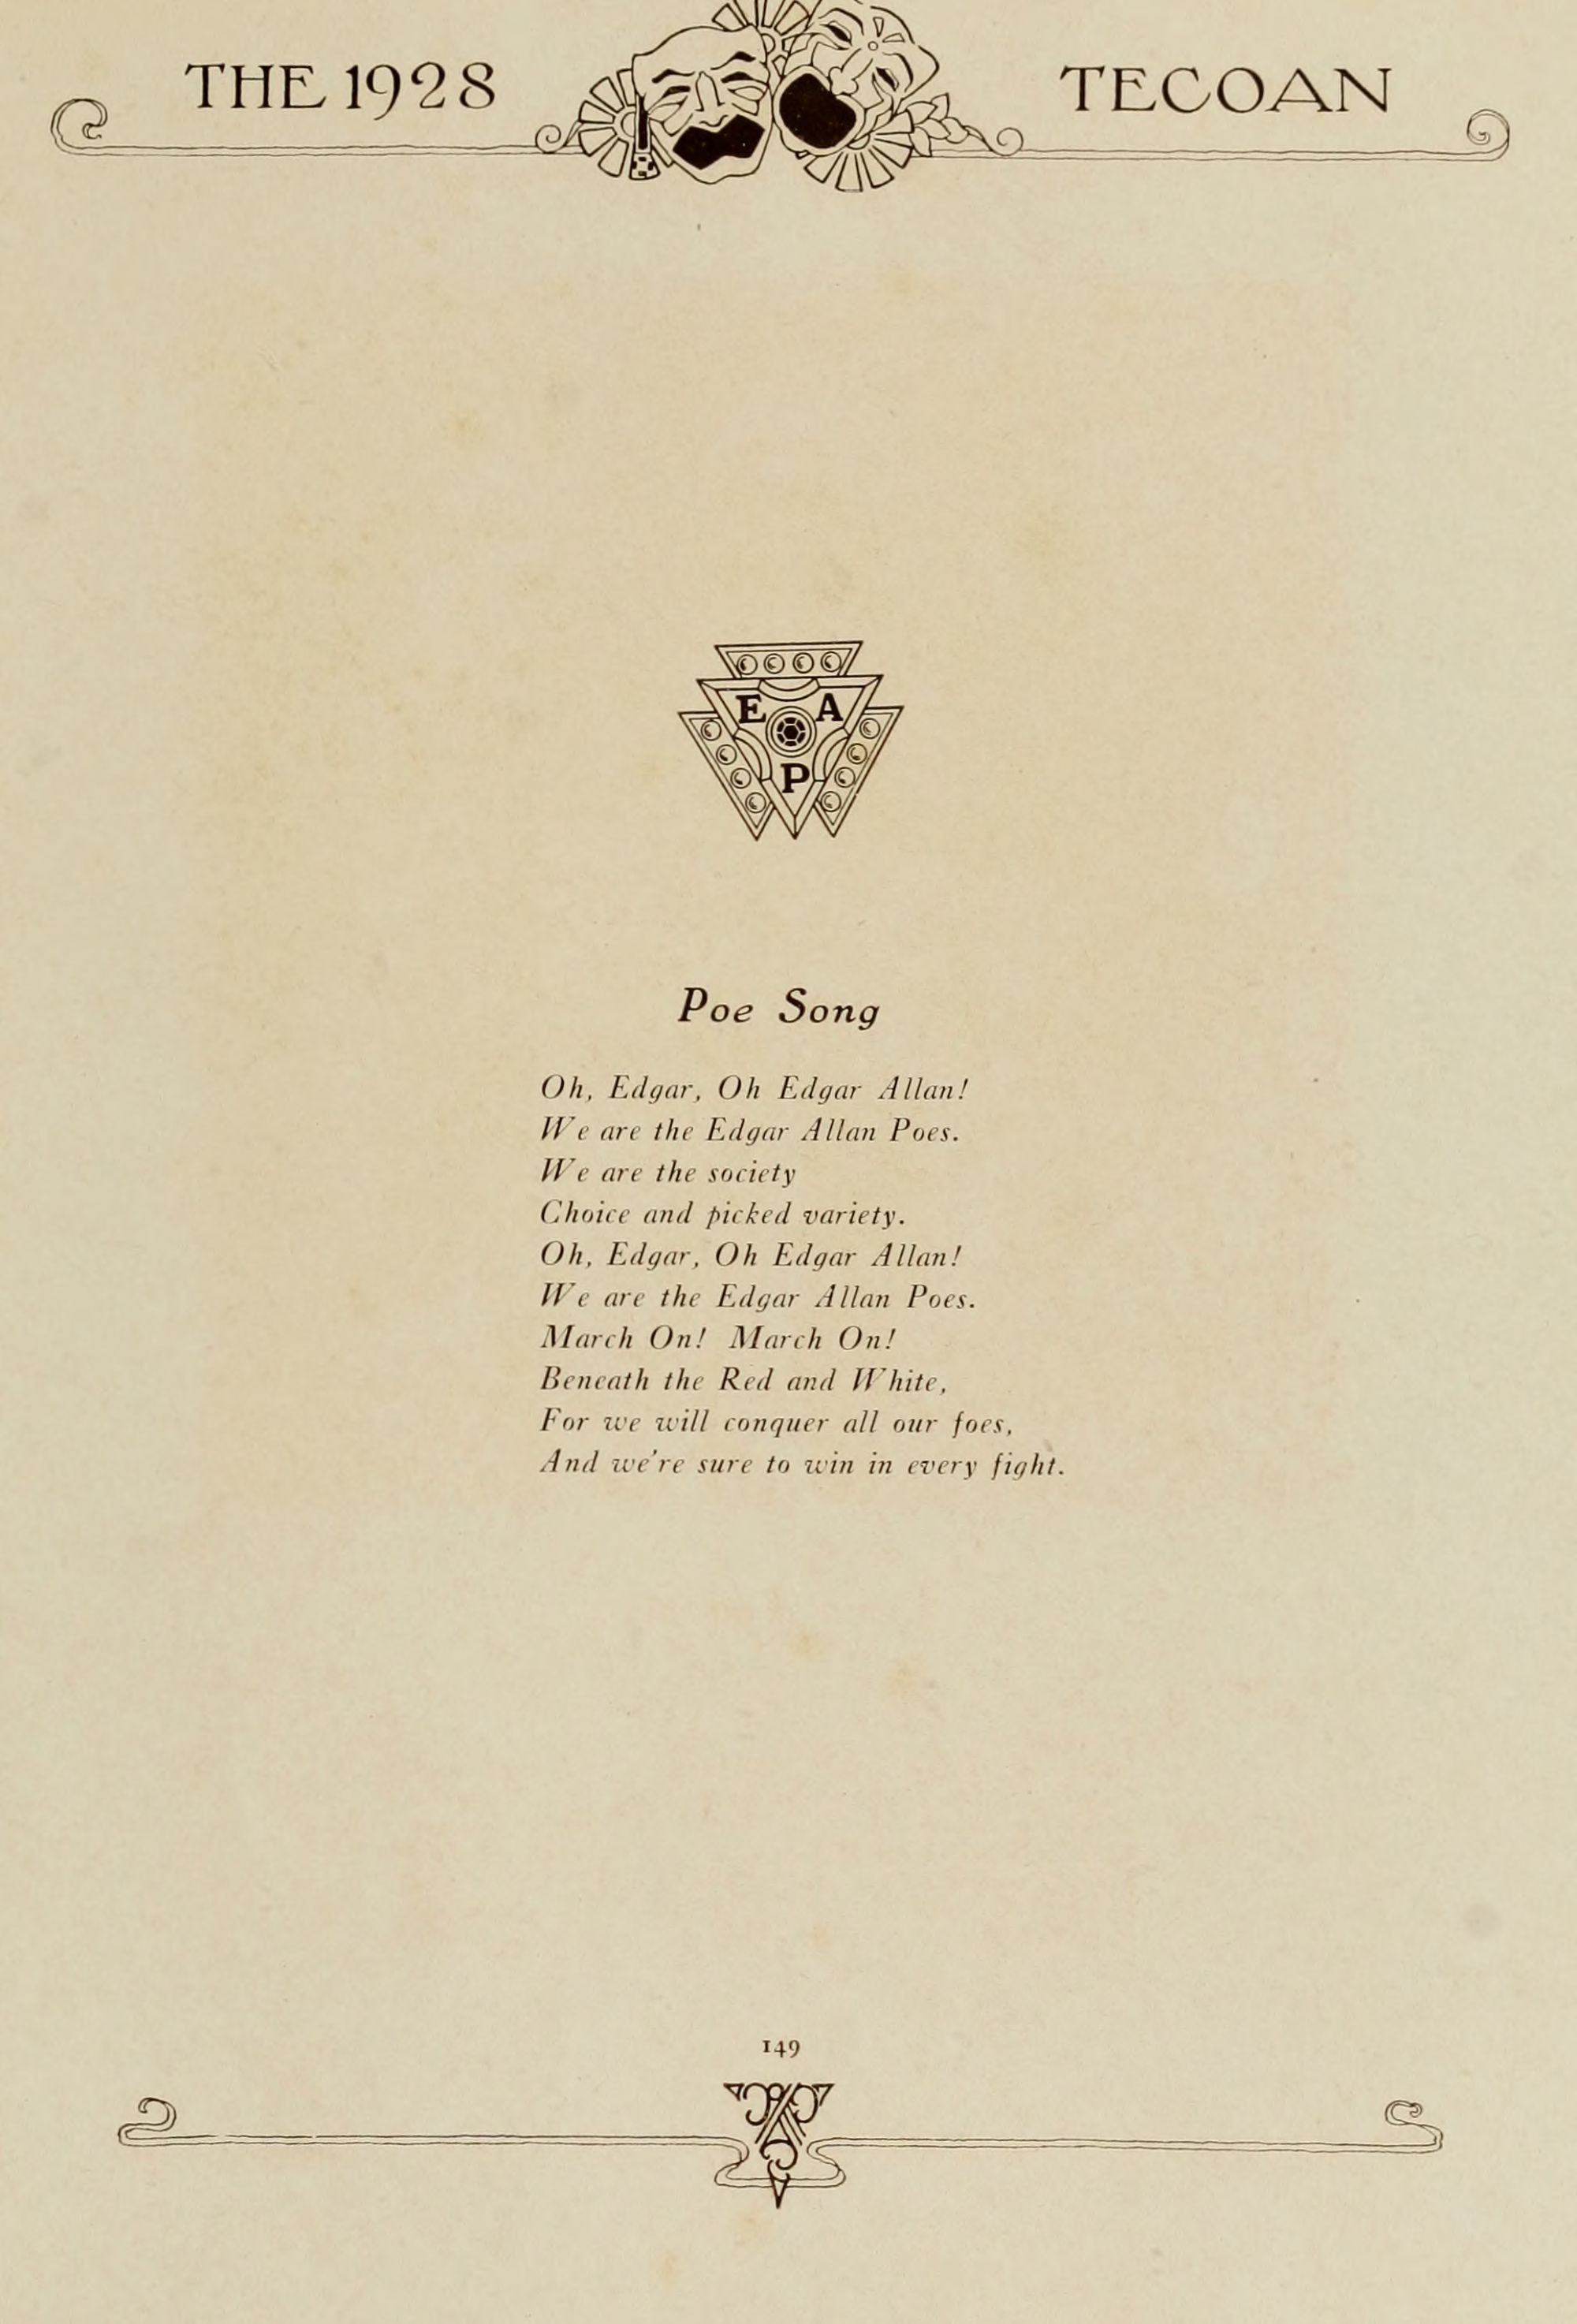 THE 1928 TECOAN
E A
P
Poe Song
Oh, Edgar, Oh Edgar Allan!
We are the Edgar Allan Poes.
We are the society
Choice and picked variety.
Oh, Edgar, Oh Edgar Allan!
We are the Edgar Allan Poes.
March On! March On!
Beneath the Red and White,
For we will conquer all our foes,
And we're sure to win in every fight.
149